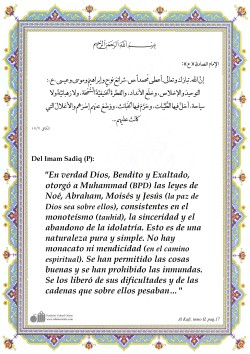 بسم الله الرحمن الرحيم
الإمام الصادق(ع):
إنّ الله تبارك وتعالى أعطى محمداً ص شرائع نوح وإبراهيم وموسى وعيسى ع :
التوحيد والإخلاص، وخلع الأنداد، والفطرة الحنيفيّة السّمحة، ولا رهبانيّة ولا
سياحة، أحلّ فيها الطّيّبات، وحرّم فيها الخبائث، ووضع عنهم إصرهم والأغلال التي
كانت عليهم...
Del Imam Sadiq (P):
"En verdad Dios, Bendito y Exaltado,
otorgó a Muhammad (BPD) las leyes de
Noé, Abraham, Moisés y Jesús (la paz de
Dios sea sobre ellos), consistentes en el
monoteísmo (tauhid), la sinceridad y el
abandono de la idolatría. Esto es de una
naturaleza pura y simple. No hay
monacato ni mendicidad (en el camino
espiritual). Se han permitido las cosas
buenas y se han prohibido las inmundas.
Se los liberó de sus dificultades y de las
cadenas que sobre ellos pesaban..."
Al Kafi, tomo II, pag.17